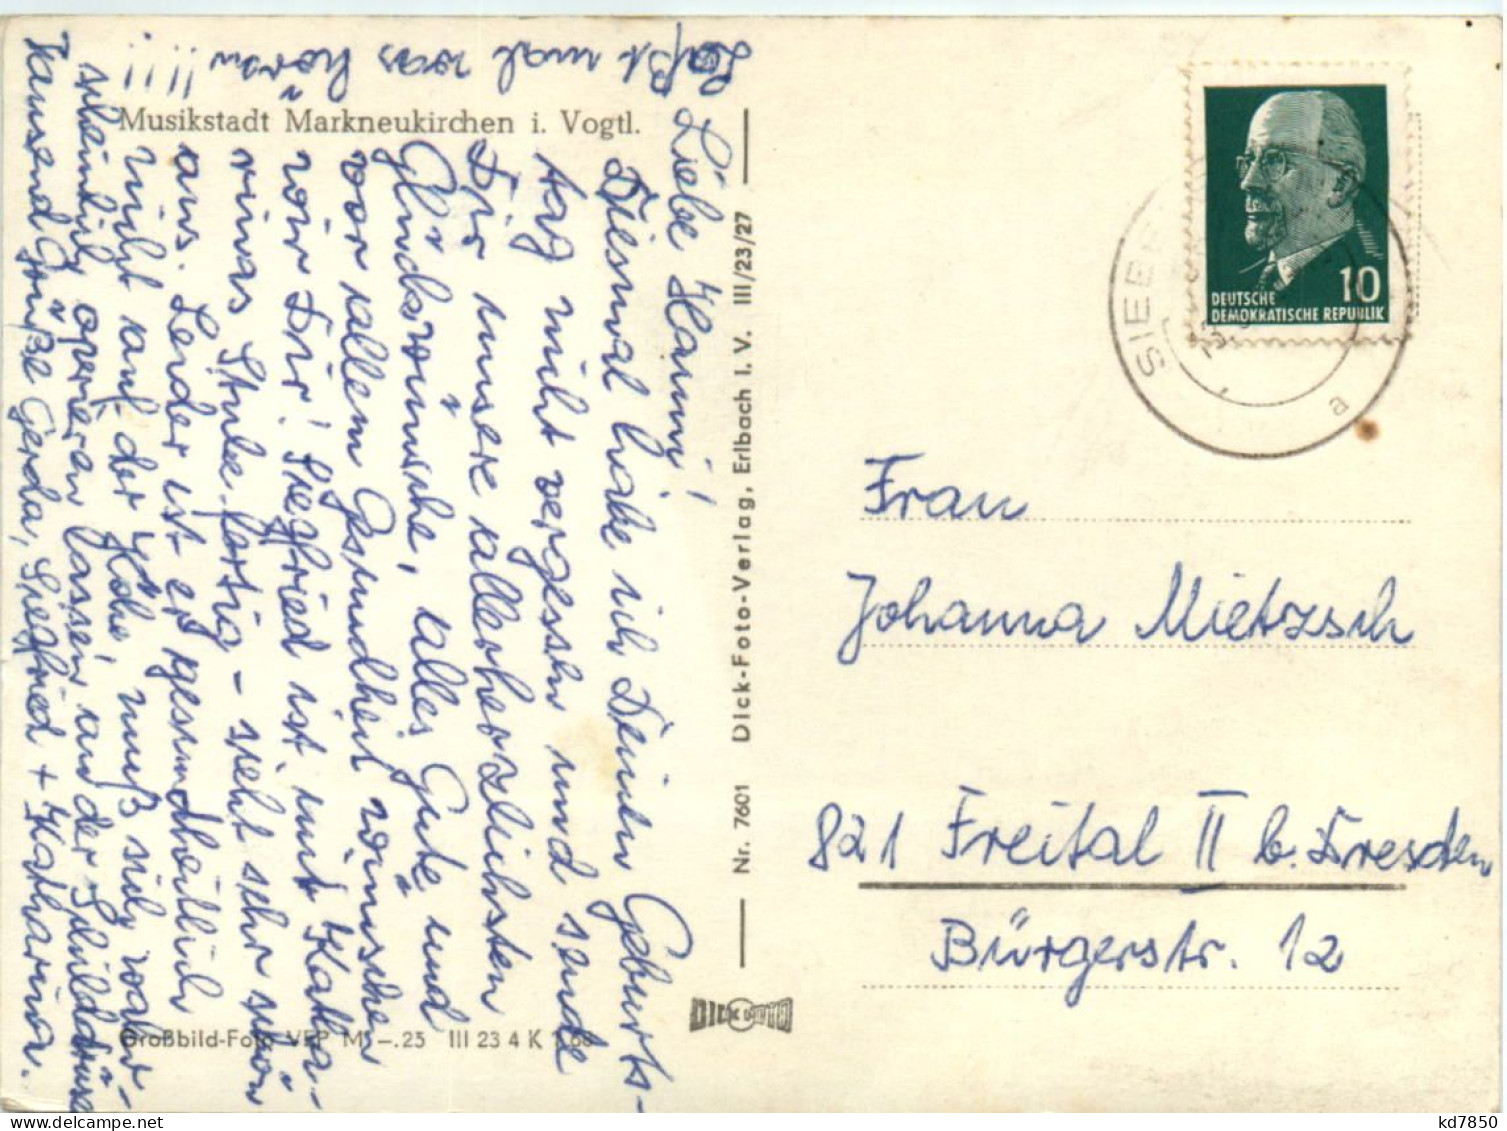 Musikstadt Markneukirchen i. Vogtl.
Laßt mal was hören
!!!!
Liebe Hanni!
Diesmal habe ich Deinen Geburts-
tag nicht vergessen und sende
Dir unsere allerherzlichsten
Glückwünsche, alles Gute und
vor allem Gesundheit wünschen
wir Dir! Siegfried ist mit Katha-
rinas Stube fertig - sieht sehr schön
aus. Leider ist er gesundheitlich
nicht auf der Höhe, muß sich wahr-
scheinlich operieren lassen an der Schilddrüse
Tausend Grüße Gerda, Siegfried + Katharina.
Großbild-Foto VEP M -.25 III 23 4 K 68
Nr. 7601 Dick-Foto-Verlag, Erlbach i. V. III/23/27
DICK FOTO
DEUTSCHE
DEMOKRATISCHE REPUBLIK
10
SIEBE
a
Frau
Johanna Mietzsch
821 Freital II b. Dresden
Bürgerstr. 12
kd7850